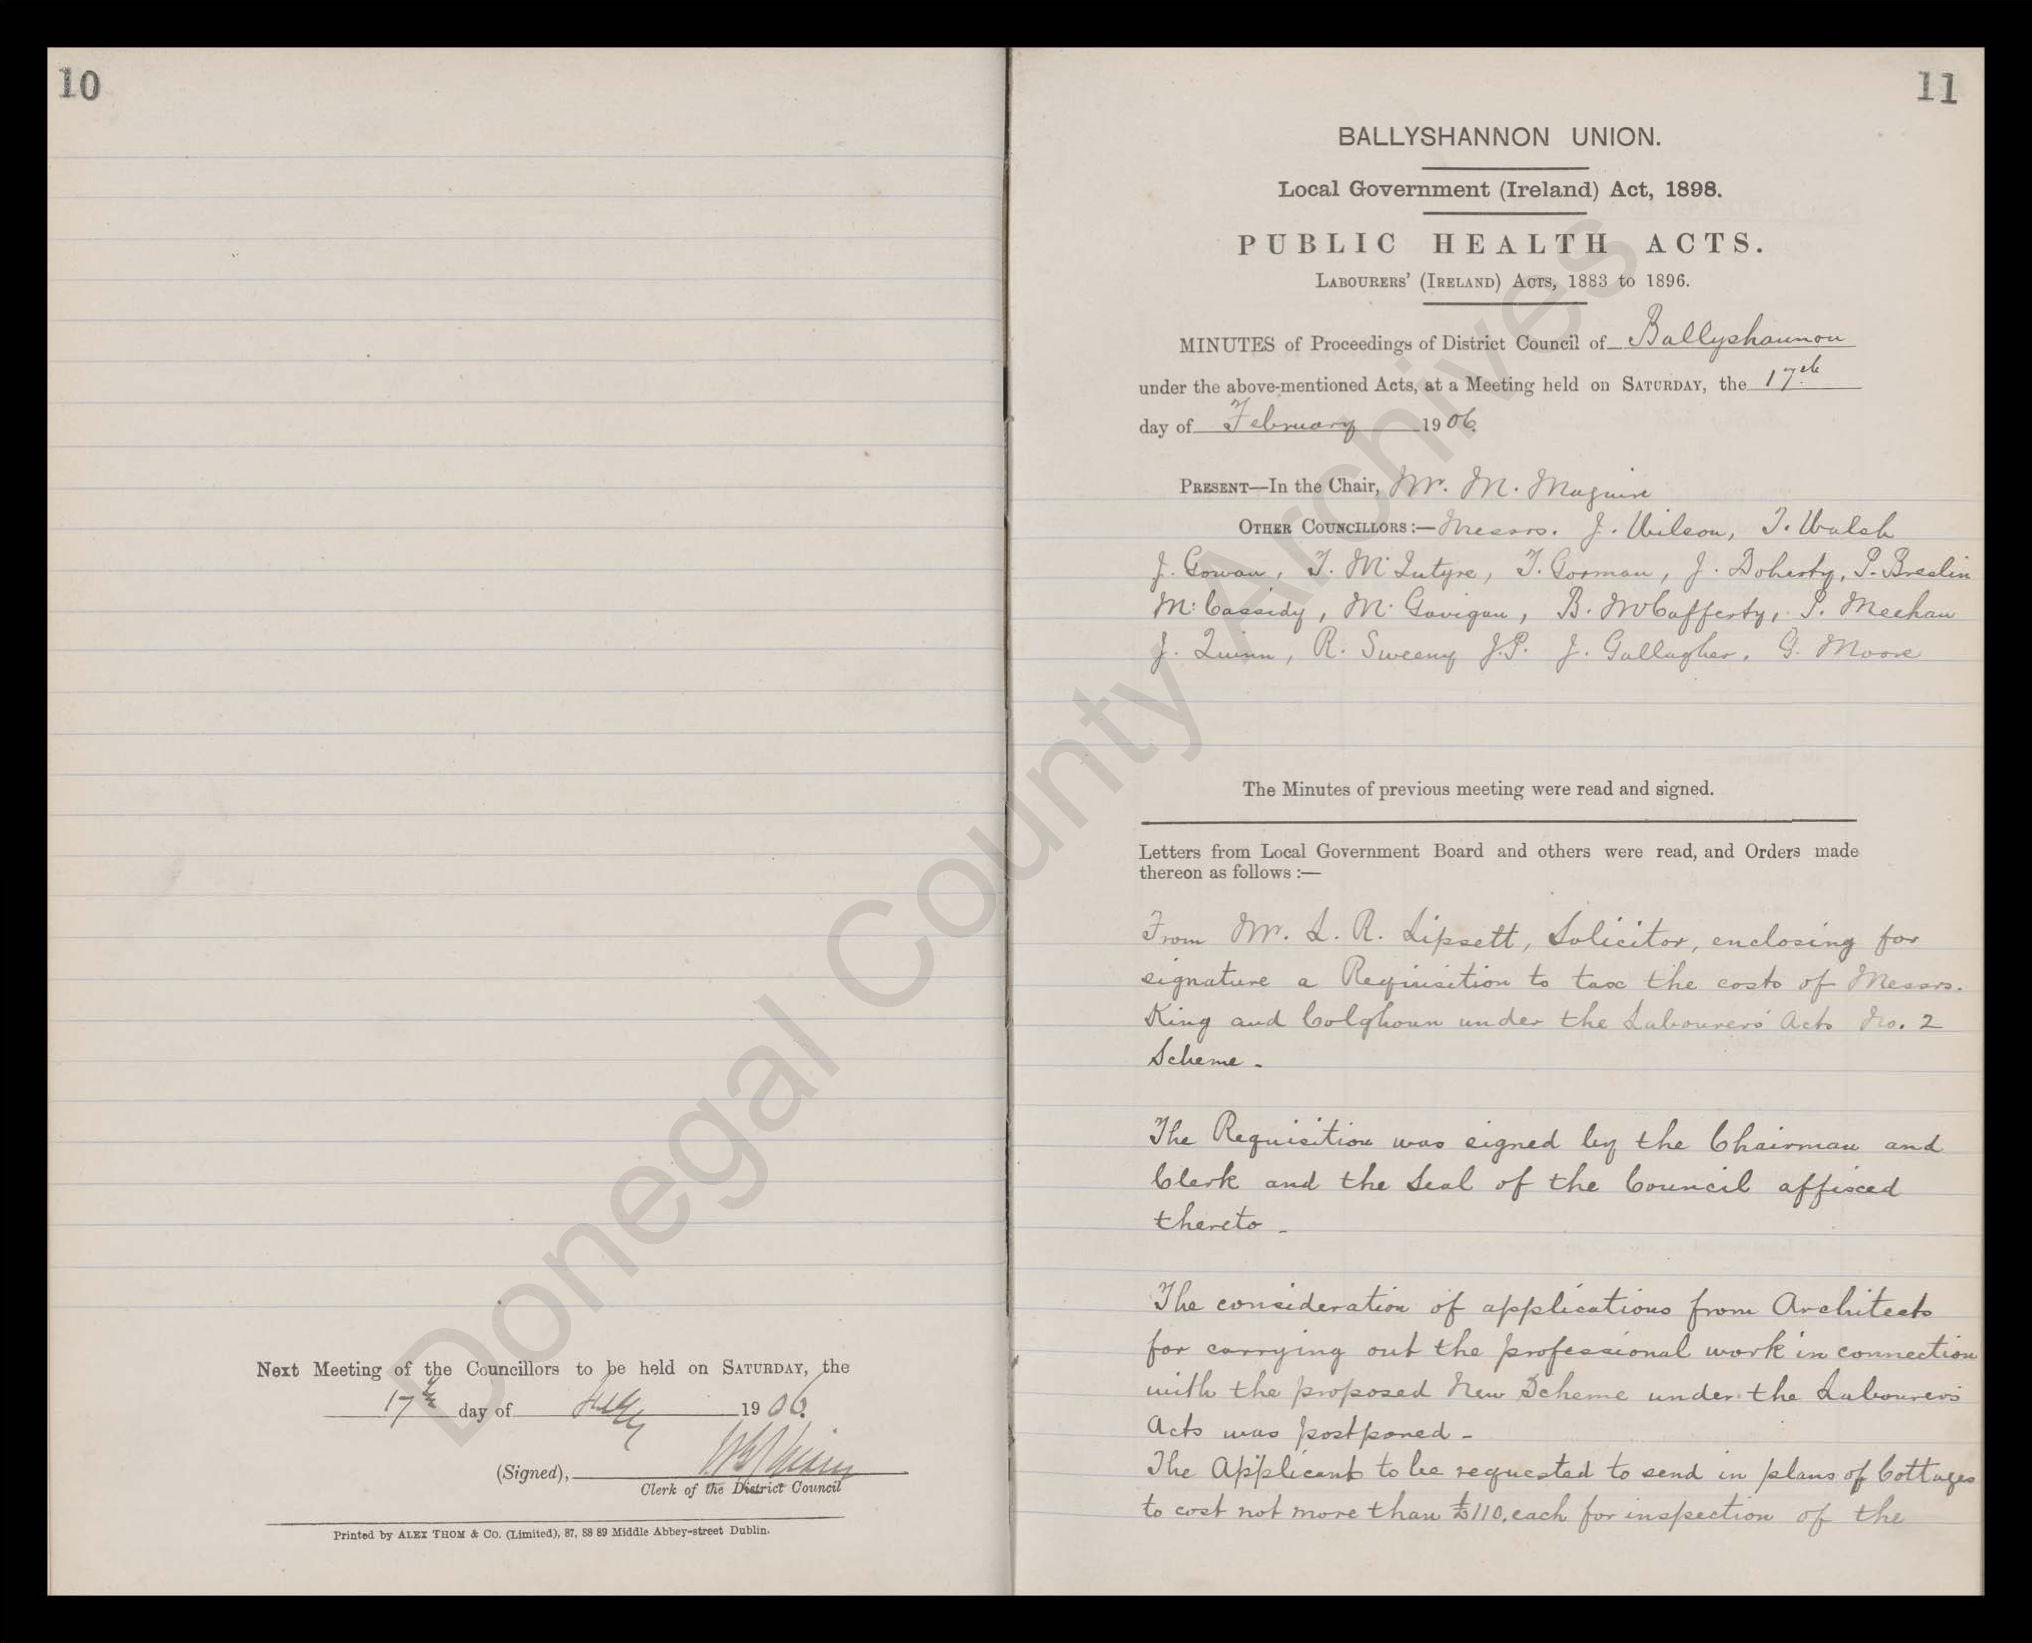 10
Next Meeting of the Councillors to be held on SATURDAY, the
17th day of 1906.
(Signed),
Clerk of the District Council
Printed by ALEX THOM & CO. (Limited), 87, 88 89 Middle Abbey-street Dublin.
11
BALLYSHANNON UNION.
Local Government (Ireland) Act, 1898.
PUBLIC HEALTH ACTS.
LABOURERS' (IRELAND) ACTS, 1883 to 1896.
MINUTES of Proceedings of District Council of Ballyshannon
under the above-mentioned Acts, at a Meeting held on SATURDAY, the 17th
day of February 1906.
PRESENT—In the Chair, Mr. M. Maguire
OTHER COUNCILLORS:—Messrs. J. Wilson, T. Walsh
J. Gowan, T. McIntyre, T. Gorman, J. Doherty, P. Breslin
M. Cassidy, M. Gavigan, B. McCafferty, P. Meehan
J. Quinn, R. Sweeny J.P. J. Gallagher, G. Moore
The Minutes of previous meeting were read and signed.
Letters from Local Government Board and others were read, and Orders made
thereon as follows :—
From Mr. L. R. Lipsett, Solicitor, enclosing for
signature a Requisition to tax the costs of Messrs.
King and Colghoun under the Labourers' Acts No. 2
Scheme -
The Requisition was signed by the Chairman and
Clerk and the Seal of the Council affixed
thereto -
The consideration of applications from Architects
for carrying out the professional work in connection
with the proposed New Scheme under the Labourers
Acts was postponed -
The Applicants to be requested to send in plans of Cottages
to cost not more than £110. each for inspection of the
Donegal County Archives